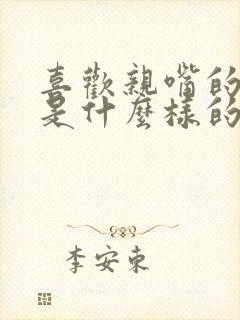 喜歡親嘴的
是什麼樣的
李安東